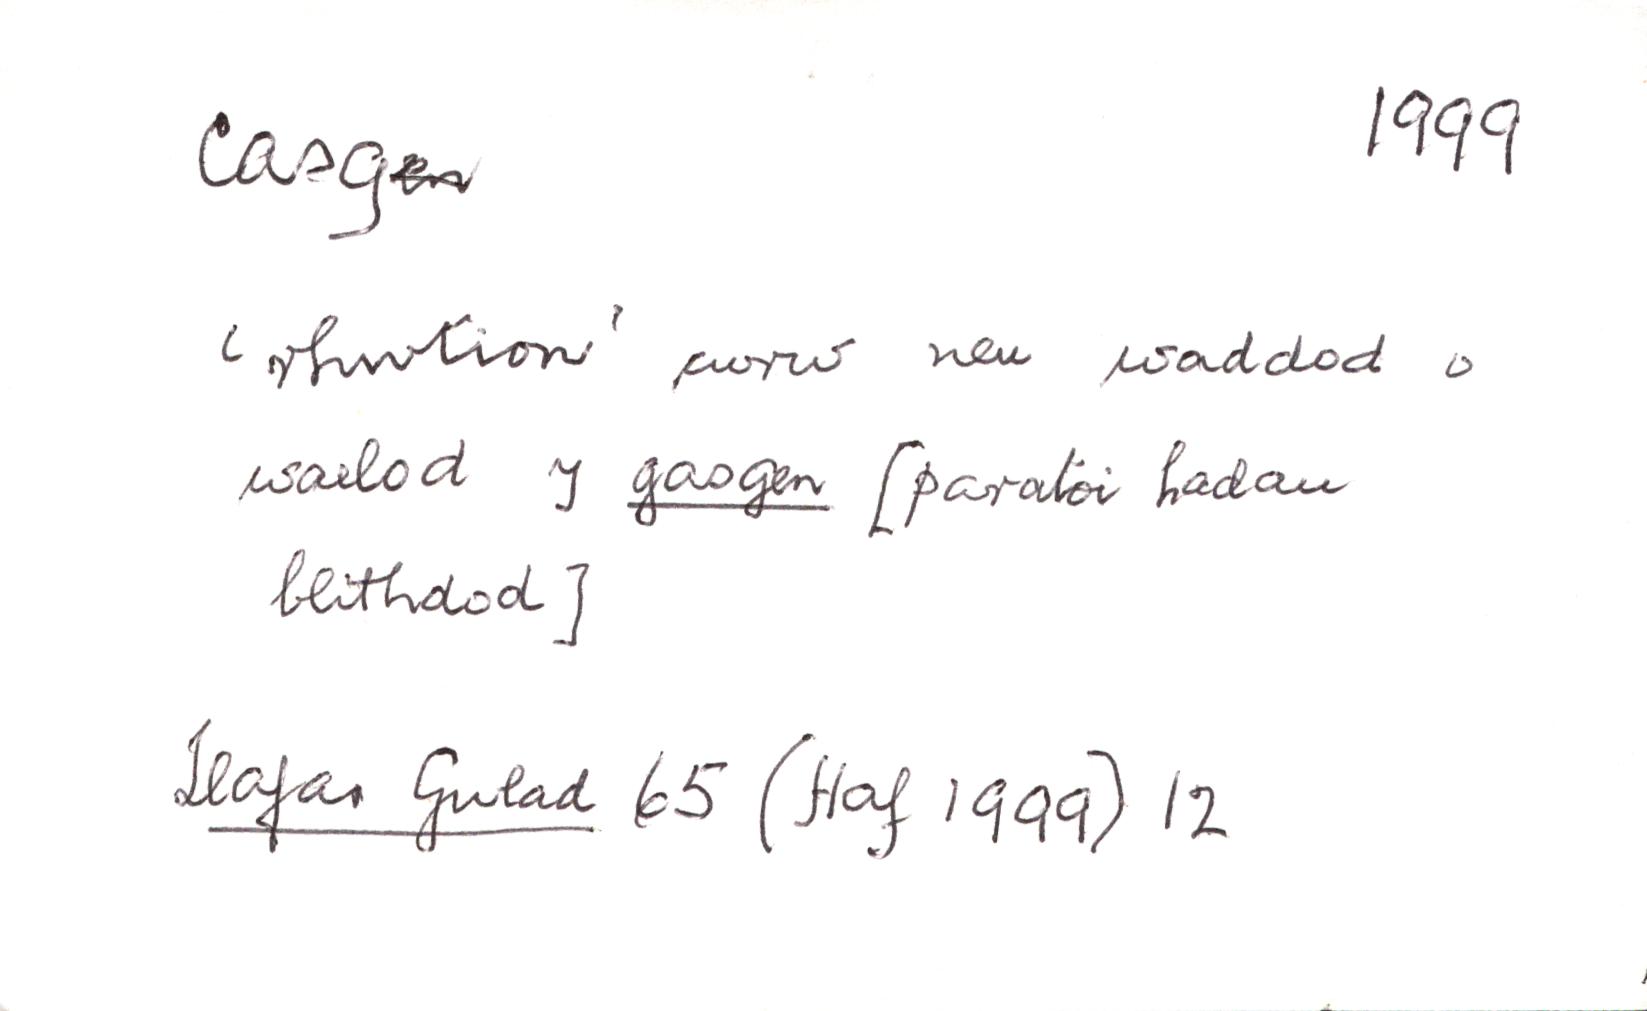 Casgen 1999
'rhwtion' cwrw neu waddod o
waelod y gasgen [paratoi hadau
blithdod]
Llafar Gwlad 65 (Haf 1999) 12